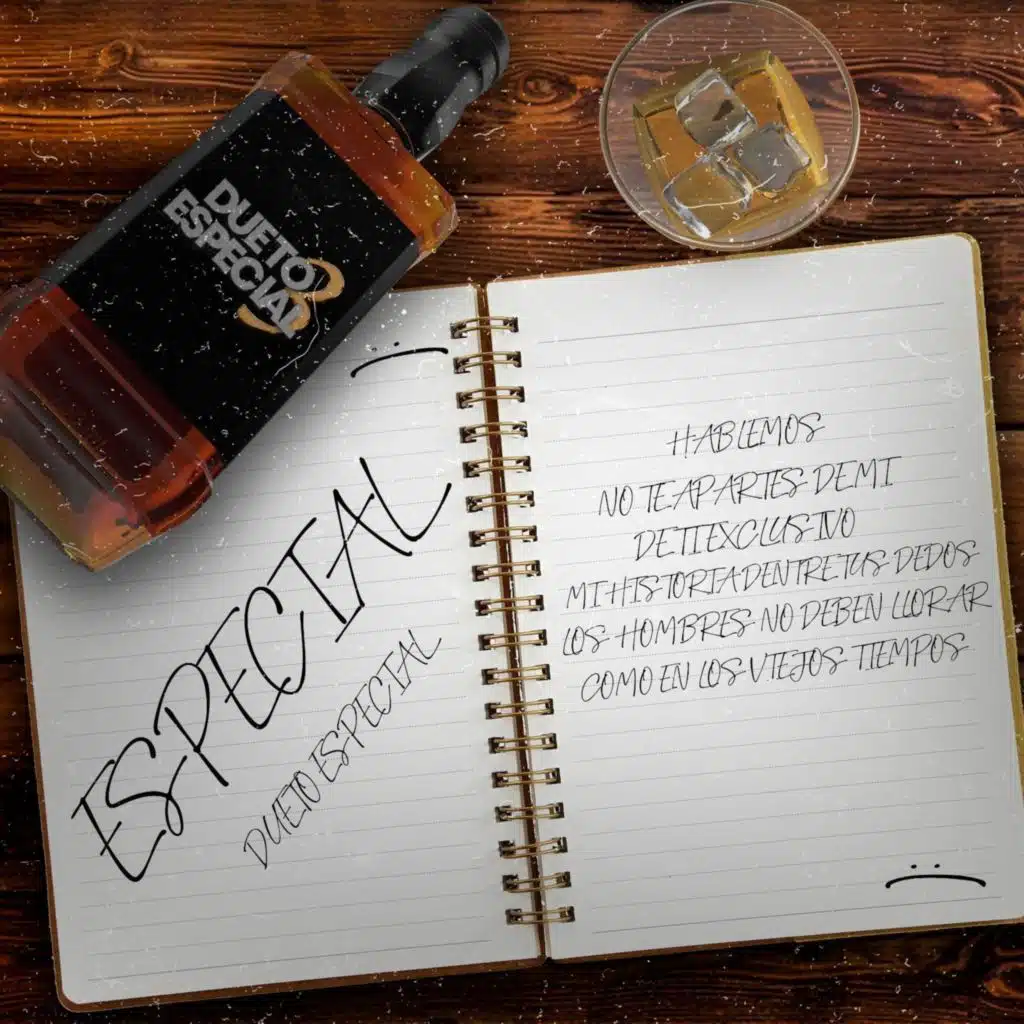 DUETO
ESPECIAL
ESPECIAL
DUETO ESPECIAL
HABLEMOS
NO TE APARTES DE MI
DE TI EXCLUSIVO
MI HISTORIA ENTRE TUS DEDOS
LOS HOMBRES NO DEBEN LLORAR
COMO EN LOS VIEJOS TIEMPOS